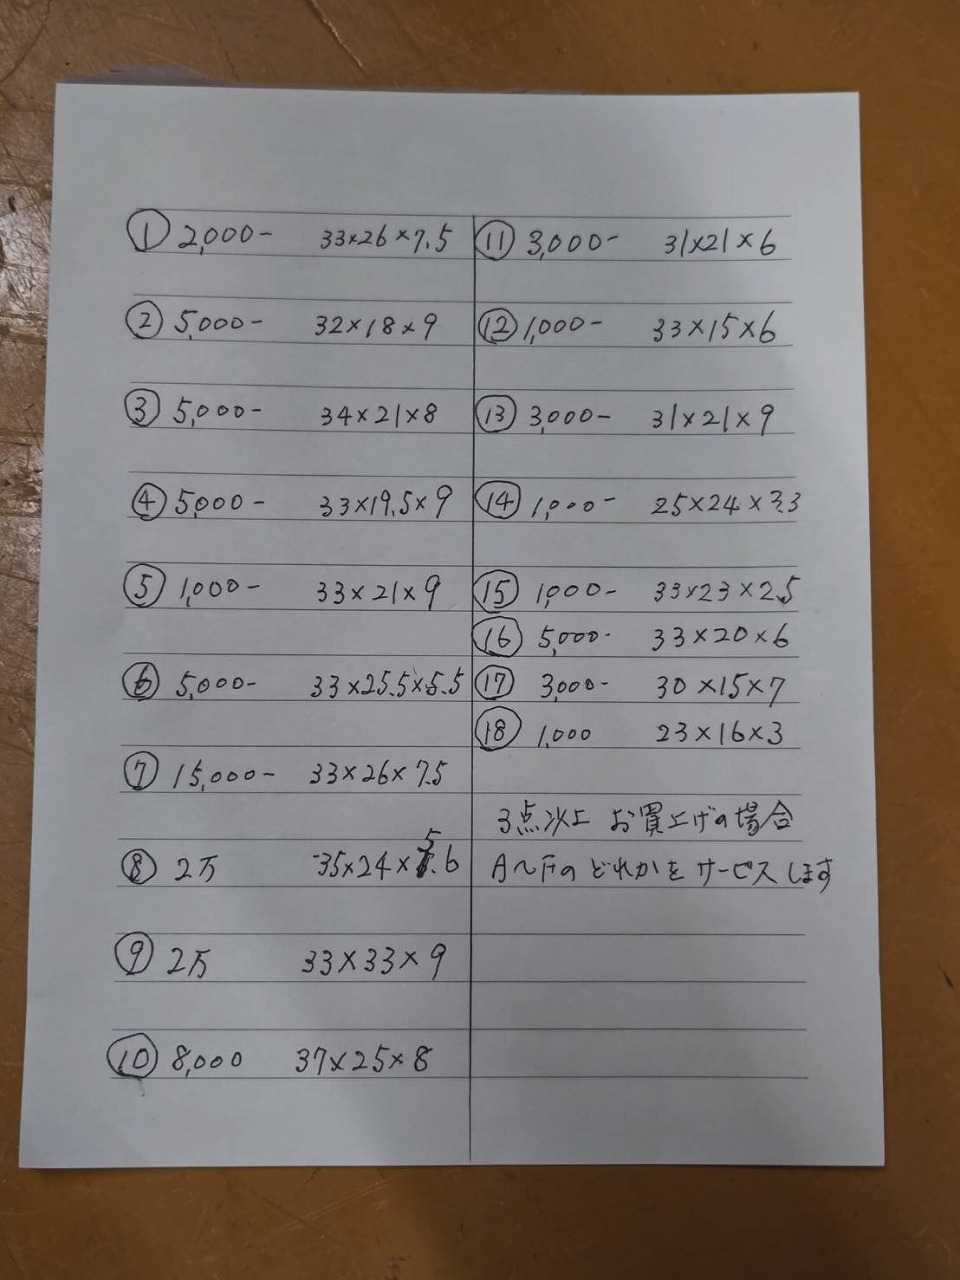 ① 2,000- 33×26×7.5
② 5,000- 32×18×9
③ 5,000- 34×21×8
④ 5,000- 33×19.5×9
⑤ 1,000- 33×21×9
⑥ 5,000- 33×25.5×5.5
⑦ 15,000- 33×26×7.5
⑧ 2万 35×24×5.6
⑨ 2万 33×33×9
⑩ 8,000 37×25×8
⑪ 3,000- 31×21×6
⑫ 1,000- 33×15×6
⑬ 3,000- 31×21×9
⑭ 1,000- 25×24×3.3
⑮ 1,000- 33×23×2.5
⑯ 5,000- 33×20×6
⑰ 3,000- 30×15×7
⑱ 1,000 23×16×3
3点以上 お買上げの場合
A〜Fのどれかをサービスします